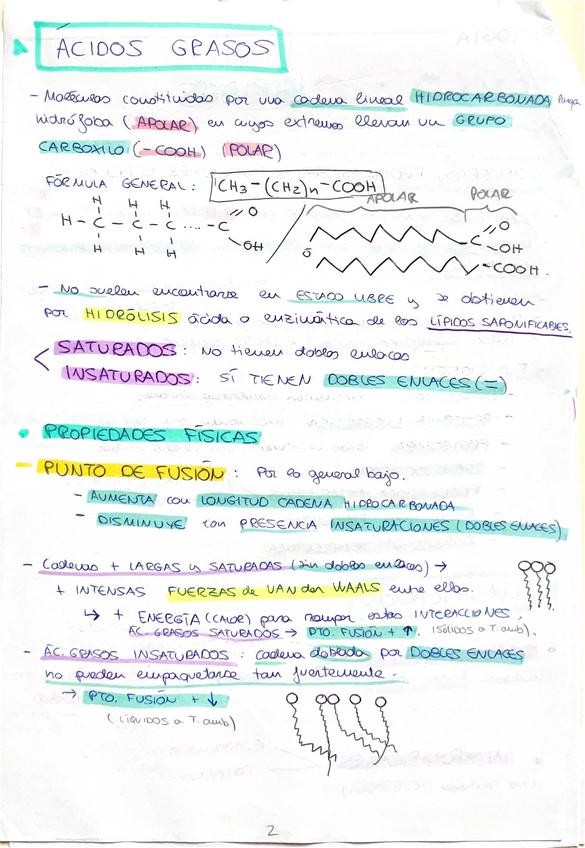 ÁCIDOS GRASOS
- Moléculas constituidas por una cadena lineal HIDROCARBONADA larga
hidrófoba (APOLAR) en cuyos extremos llevan un GRUPO
CARBOXILO (-COOH) (POLAR)
FÓRMULA GENERAL: CH3-(CH2)n-COOH
APOLAR POLAR
H H H O
H - C - C - C .... - C O
H H H OH / ó C - OH
- COOH.
- No suelen encontrarse en ESTADO LIBRE y se obtienen
por HIDRÓLISIS ácida o enzimática de los LÍPIDOS SAPONIFICABLES.
< SATURADOS: No tienen dobles enlaces
INSATURADOS: SÍ TIENEN DOBLES ENLACES (=)
• PROPIEDADES FÍSICAS
- PUNTO DE FUSIÓN: Por lo general bajo.
- AUMENTA con LONGITUD CADENA HIDROCARBONADA
- DISMINUYE con PRESENCIA INSATURACIONES (DOBLES ENLACES)
- Cadenas + LARGAS y SATURADAS (sin dobles enlaces) →
+ INTENSAS FUERZAS de VAN der WAALS entre ellas.
↳ + ENERGÍA (CALOR) para romper estas INTERACCIONES.
ÁC. GRASOS SATURADOS → PTO. FUSIÓN + ↑. (SÓLIDOS a T. amb).
- ÁC. GRASOS INSATURADOS: cadena doblada por DOBLES ENLACES
no pueden empaquetarse tan fuertemente.
→ PTO. FUSIÓN + ↓
(LÍQUIDOS a T. amb)
2